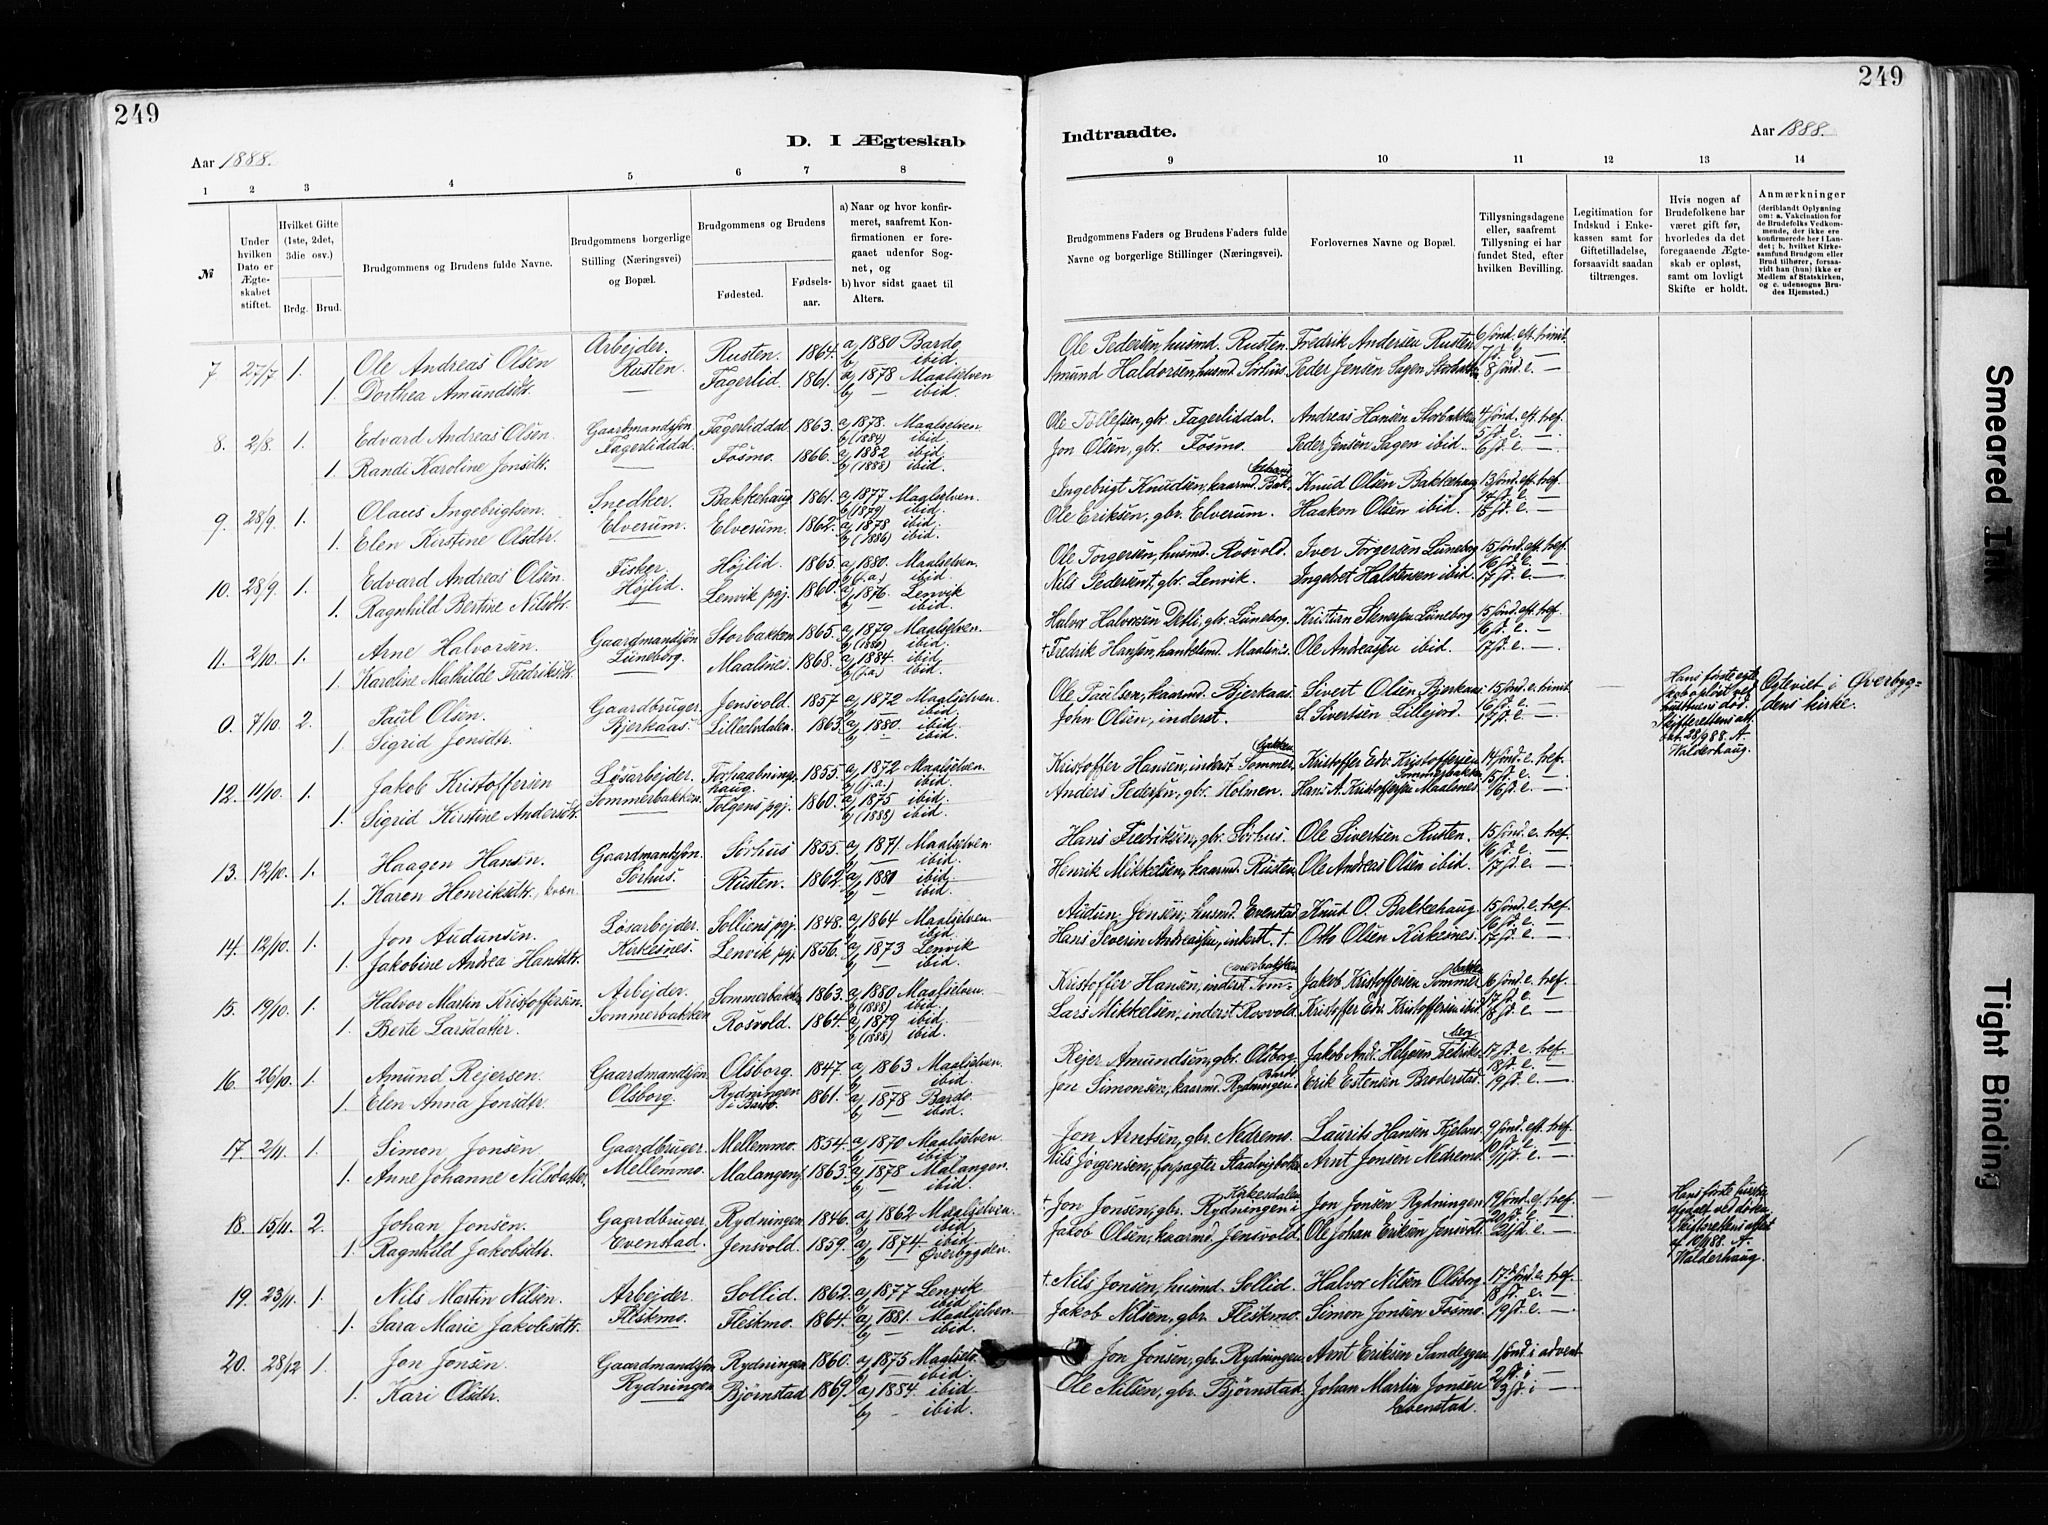 249
249
D. I Ægteskab
Indtraadte.
Aar 1888.
Aar 1888.
1 2 3 4 5 6 7 8
9 10 11 12 13 14
№
Under hvilken Dato er Ægteskabet stiftet.
Hvilket Gifte (1ste, 2det, 3die osv.)
Brdg. Brud.
Brudgommens og Brudens fulde Navne.
Brudgommens borgerlige Stilling (Næringsvei) og Bopæl.
Brudgommens og Brudens
Fødested. Fødselsaar.
a) Naar og hvor konfirmeret, saafremt Konfirmationen er foregaaet udenfor Sognet, og
b) hvor sidst gaaet til Alters.
Brudgommens Faders og Brudens Faders fulde Navne og borgerlige Stillinger (Næringsvei).
Forlovernes Navne og Bopæl.
Tillysningsdagene eller, saafremt Tillysning ei har fundet Sted, efter hvilken Bevilling.
Legitimation for Indskud i Enkekassen samt for Giftetilladelse, forsaavidt saadan tiltrænges.
Hvis nogen af Brudefolkene har været gift før, hvorledes da det foregaaende Ægteskab er opløst, samt om lovligt Skifte er holdt.
Anmærkninger
(deriblandt Oplysning om: a. Vakcination for de Brudefolks Vedkommende, der ikke ere konfirmerede her i Landet; b. hvilket Kirkesamfund Brudgom eller Brud tilhører, forsaavidt han (hun) ikke er Medlem af Statskirken, og c. udensogns Brudes Hjemsted.)
7 27/7 1. Ole Andreas Olsen Arbejder. Rusten. Rusten. 1864. a) 1880 Bardo b) — ibid. Ole Pedersen, husmd. Rusten Fredrik Andersen Rusten 6 sønd. eft. trinit.
1. Dorthea Amundsdtr. — Fagerlid. 1861. a) 1878 Maalselven b) — ibid. Amund Haldorsen, husmd. Sørhus Peder Jensen Sagen 7 sd. e. — 8 sønd. e. —
8. 2/8. 1. Edvard Andreas Olsen. Gaardmandsøn Fagerliddal. Fagerliddal. 1863. a) 1878. Maalselven b) (1884) ibid. Ole Tollefsen, gbr. Fagerliddal. Andreas Hansen Storbakken 4 sønd. eft. tref.
1. Randi Karoline Jonsdtr. — Fosmo. 1866. a) 1882 ibid. b) (1888) ibid. Jon Olsen, gbr. Fosmo. Peder Jensen Sagen ibid. 5 sd. e. — 6 sd. e. —
9. 28/9 1. Olaus Ingebrigtsen. Snedker. Elverum. Bakkehaug 1861. a) 1877 Maalselven. b) (1879) ibid. Ingebrigt Knudsen, kaarmd. Bakkehaug Knud Olsen Bakkehaug 13 sønd. eft. tref.
1. Elen Kirstine Olsdtr. Elverum. 1862. a) 1878 ibid. b) (1886) ibid. Ole Eriksen, gbr. Elverum. Haakon Olsen ibid. 14 sd. e. — 15 sd. e. —
10. 28/9. 1. Edvard Andreas Olsen. Fisker. Højlid. Højlid. 1865. a) 1880. Maalselven. b) (f.a.) ibid. Ole Torgersen, husmd. Rosvold. Iver Torgersen Luneborg 15 sønd. eft. tref.
1. Ragnhild Bertine Nilsdtr. Lenvik pgj. 1860. a) 1876. Lenvik b) — ibid. Nils Pedersen †, gbr. Lenvik. Ingebret Halstensen ibid. 16 sd. e. — 17 sd. e. —
11. 2/10. 1. Arne Halvorsen. Gaardmandsøn Luneborg. Storbakken 1865. a) 1879 Maalselven. b) (1880) ibid. Halvor Halvorsen Detli, gbr. Luneborg. Kristian Stenersen Luneborg 15 sønd. eft. tref.
1. Karoline Mathilde Fredriksdtr. Maalsnes. 1868. a) 1884. ibid. b) (f.a.) ibid. † Fredrik Hansen, handelsmd. Maalsnes. Ole Andreassen ibid. 16 sd. e. — 17 sd. e. —
0. 7/10. 2. Paul Olsen. Gaardbruger. Bjerkaas. Jensvold. 1857 a) 1872 Maalselven. b) — ibid. Ole Paulsen, kaarmd. Bjerkaas Sivert Olsen Bjerkaas 15 sønd. e. trinit. — Hans første egteskab opløst ved hustruens død. Skifterettens att. dat. 28/9 88. A. Walderhaug. Egteviet i Øverbygdens kirke.
1. Sigrid Jonsdtr. Lilleelvdalen. 1863. a) 1880. ibid. b) — ibid. John Olsen, inderst. S. Sivertsen Lillejord. 16 sd. e. — 17 sd. e. —
12. 11/10. 1. Jakob Kristoffersen Løsarbejder. Sommerbakken. Forhaabningshaug. 1855. a) 1872 Maalselven. b) (f.a.) ibid. Kristoffer Hansen, inderst Sommerbakken Kristoffer Edv. Kristoffersen Sommerbakken 14 sønd. e. tref.
1. Sigrid Kirstine Andersdtr. Tolgens pgj. 1860. a) 1875 ibid. b) (1888) ibid. Anders Pedersen, gbr. Holmen. Hans A. Kristoffersen Maalsnes 15 sd. e. — 16 sd. e. —
13. 12/10. 1. Haagen Hansen. Gaardmandsøn. Sørhus. Sørhus 1855. a) 1871. Maalselven. b) — ibid. Hans Fredriksen, gbr. Sørhus. Ole Sivertsen Rusten. 15 sønd. e. tref.
1. Karen Henriksdtr., kvæn. Rusten. 1862. a) 1880 ibid. b) — ibid. Henrik Mikkelsen, kaarmd. Rusten Ole Andreas Olsen ibid. 16 sd. e. — 17 sd. e. —
14. 12/10. 1. Jon Audunsen. Løsarbejder. Kirkesnes. Solliens pgj. 1848. a) 1864 Maalselven. b) — ibid. Audun Jonsen, husmd. Evenstad. Knud O. Bakkehaug. 15 sønd. e. tref.
1. Jakobine Andrea Hansdtr. Lenvik pgj. 1856. a) 1873 Lenvik b) — ibid. Hans Severin Andreassen, inderst. † Otto Olsen Kirkesnes. 16 sd. e. — 17 sd. e. —
15. 19/10. 1. Halvor Martin Kristoffersen. Arbejder. Sommerbakken. Sommerbakken 1863. a) 1880 Maalselven. b) (1888) ibid. Kristoffer Hansen, inderst Sommerbakken Jakob Kristoffersen Sommerbakken 16 sønd. e. tref.
1. Berte Larsdatter. Rosvold. 1864. a) 1879 ibid. b) (1888) ibid. Lars Mikkelsen, inderst Rosvold. Kristoffer Edv. Kristoffersen ibid. 17 sd. e. — 18 sd. e. —
16. 26/10. 1. Amund Rejersen. Gaardmandsøn. Olsborg. Olsborg. 1847. a) 1863 Maalselven. b) — ibid. Rejer Amundsen, gbr. Olsborg. Jakob And. Helgesen Fredriksberg 17 sd. e. tref.
1. Elen Anna Jonsdtr. Rydningen i Bardo. 1861. a) 1878 Bardo b) — ibid. Jon Simonsen, kaarmd. Rydningen i Bardo. Erik Estensen Broderstad. 18 sd. e. — 19 sd. e. —
17. 2/11. 1. Simon Jonsen. Gaardbruger. Mellemmo. Mellemmo. 1854. a) 1870 Maalselven. b) — ibid. Jon Arntsen, gbr. Nedremo. Laurits Hansen 9 sønd. eft. tref.
1. Anne Johanne Nilsdatter. Malangen. 1863. a) 1878 Malangen. b) — ibid. Nils Jørgensen, forpagter Arnt Jonsen Nedremo. 10 sd. e. — 11 sd. e. —
18. 15/11. 2. Johan Jonsen. Gaardbruger. Evenstad. Rydningen 1846. a) 1862 Maalselven. b) — ibid. † Jon Jonsen, gbr. Rydningen i Kirkesdalen Jon Jonsen Rydningen 19 sønd. ef. tref. — Hans første hustru afgaaet ved døden. Skifterettens attest af 10/11 88. A. Walderhaug.
1. Ragnhild Jakobsdtr. Jensvold. 1859. a) 1874. ibid. b) — Øverbygden. Jakob Olsen, kaarmd. Jensvold. Ole Johan Eriksen Jensvold. 20 sd. e. — 21 sd. e. —
19. 23/11. 1. Nils Martin Nilsen. Arbejder. Fleskmo. Sollid. 1862. a) 1877 Lenvik b) — ibid. † Nils Jonsen, husmd. Sollid. Halvor Nilsen Olsborg. 17de sønd. e. tref.
1. Sara Marie Jakobsdtr. Fleskmo. 1864. a) 1881. Maalselven. b) — ibid. Jakob Nilsen, gbr. Fleskmo. Simon Jonsen Fosmo. 18 sd. e. — 19 sd. e. —
20. 28/12 1. Jon Jonsen. Gaardmandsøn Rydningen Rydningen 1860. a) 1875 Maalselv. b) — ibid. Jon Jonsen, gbr. Rydningen. Arnt Eriksen Sandeggen 1 sønd. i advent
1. Kari Olsdtr. Bjørnstad 1869. a) 1884. ibid. b) — ibid. Ole Nilsen, gbr. Bjørnstad. Johan Martin Jonsen Evenstad. 2 sd. i — 3 sd. i —
Smeared Ink
Tight Binding